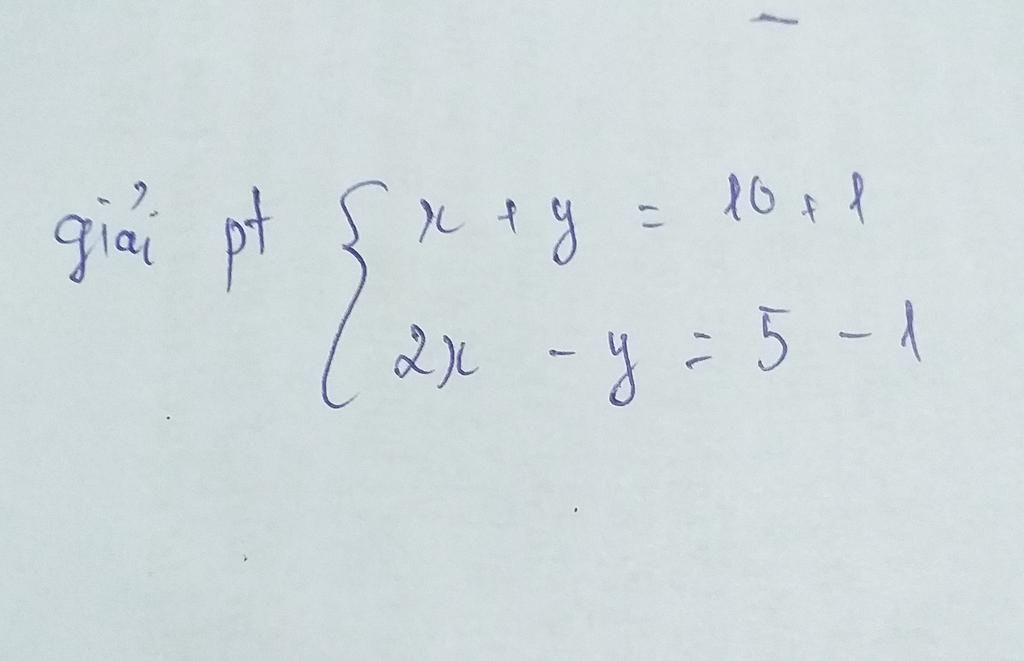 giải pt { x + y = 10 + 1
2x - y = 5 - 1